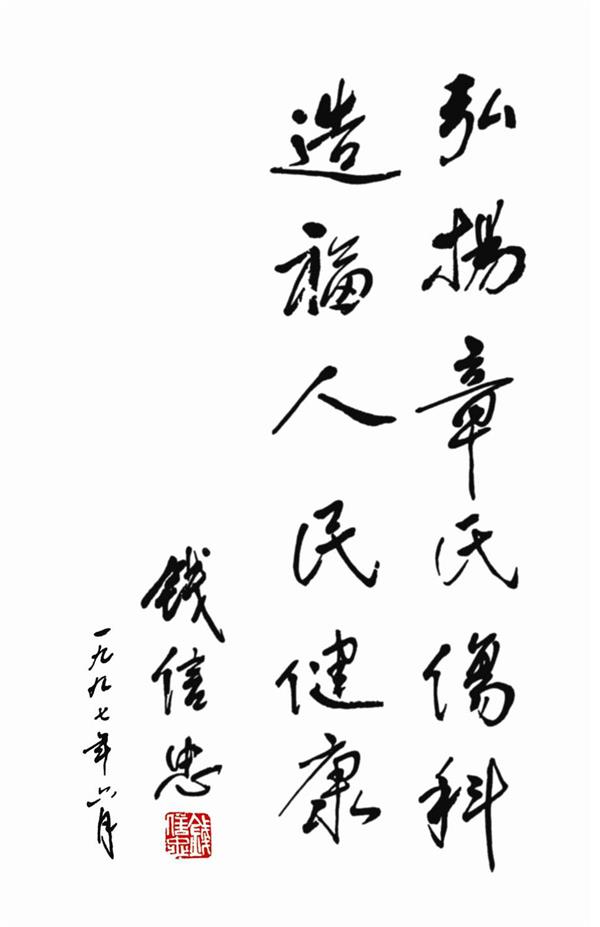 弘揚章氏傷科
造福人民健康
錢信忠
一九九七年六月
錢信忠